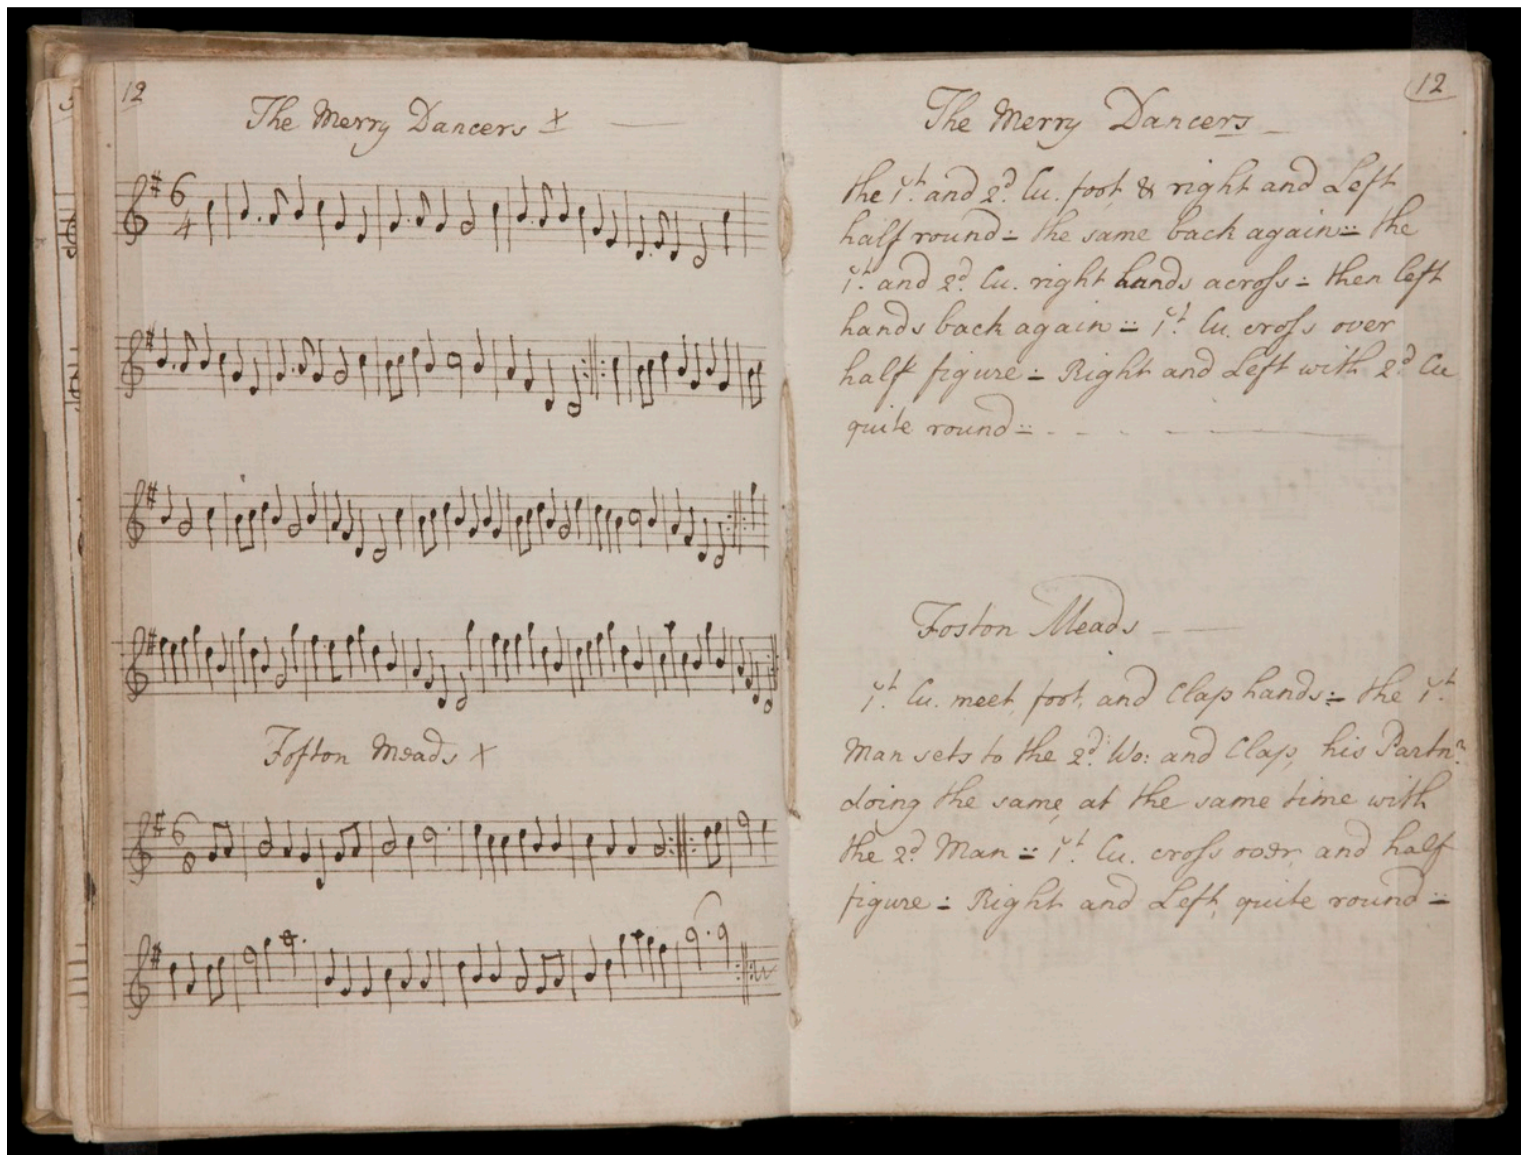 12
The Merry Dancers x
6
4
Foſton Meads x
6
8
12
The Merry Dancers
the 1st. and 2d. Cu. foot, & right and Left
half round ∸ the same back again ∺ the
1st. and 2d. Cu. right hands acroſs ∸ then left
hands back again ∺ 1st. Cu. croſs over
half figure ∸ Right and Left with 2d. Cu
quite round ∺
Foston Meads
1st. Cu. meet, foot, and Clap hands ∸ the 1st.
Man sets to the 2d. Wo: and Clap, his Partnr.
doing the same, at the same time with
the 2d. Man ∺ 1st. Cu. croſs over and half
figure ∸ Right and Left, quite round ∺